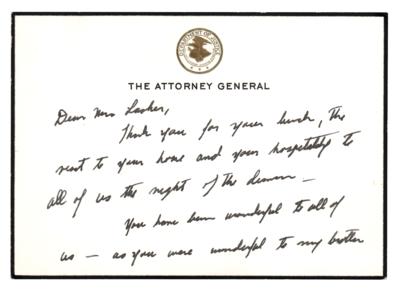 DEPARTMENT OF JUSTICE
THE ATTORNEY GENERAL
Dear Mrs Lasker,
Thank you for your lunch, the
to your home and your hospitality to
all of us the night of the dinner —
You have been wonderful to all of
us — as you were wonderful to my brother